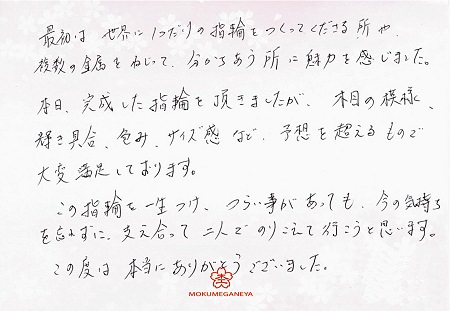 最初は 世界に1つだけの指輪をつくってくださる所や、
複数の金属をねじって、分かちあう所に魅力を感じました。
本日、完成した指輪を頂きましたが、木目の模様、
輝き具合、色み、サイズ感など、予想を超えるもので
大変満足しております。
この指輪を一生つけ、つらい事があっても、今の気持ち
を忘れずに、支え合って二人でのりこえて行こうと思います。
この度は 本当にありがとうございました。
MOKUMEGANEYA